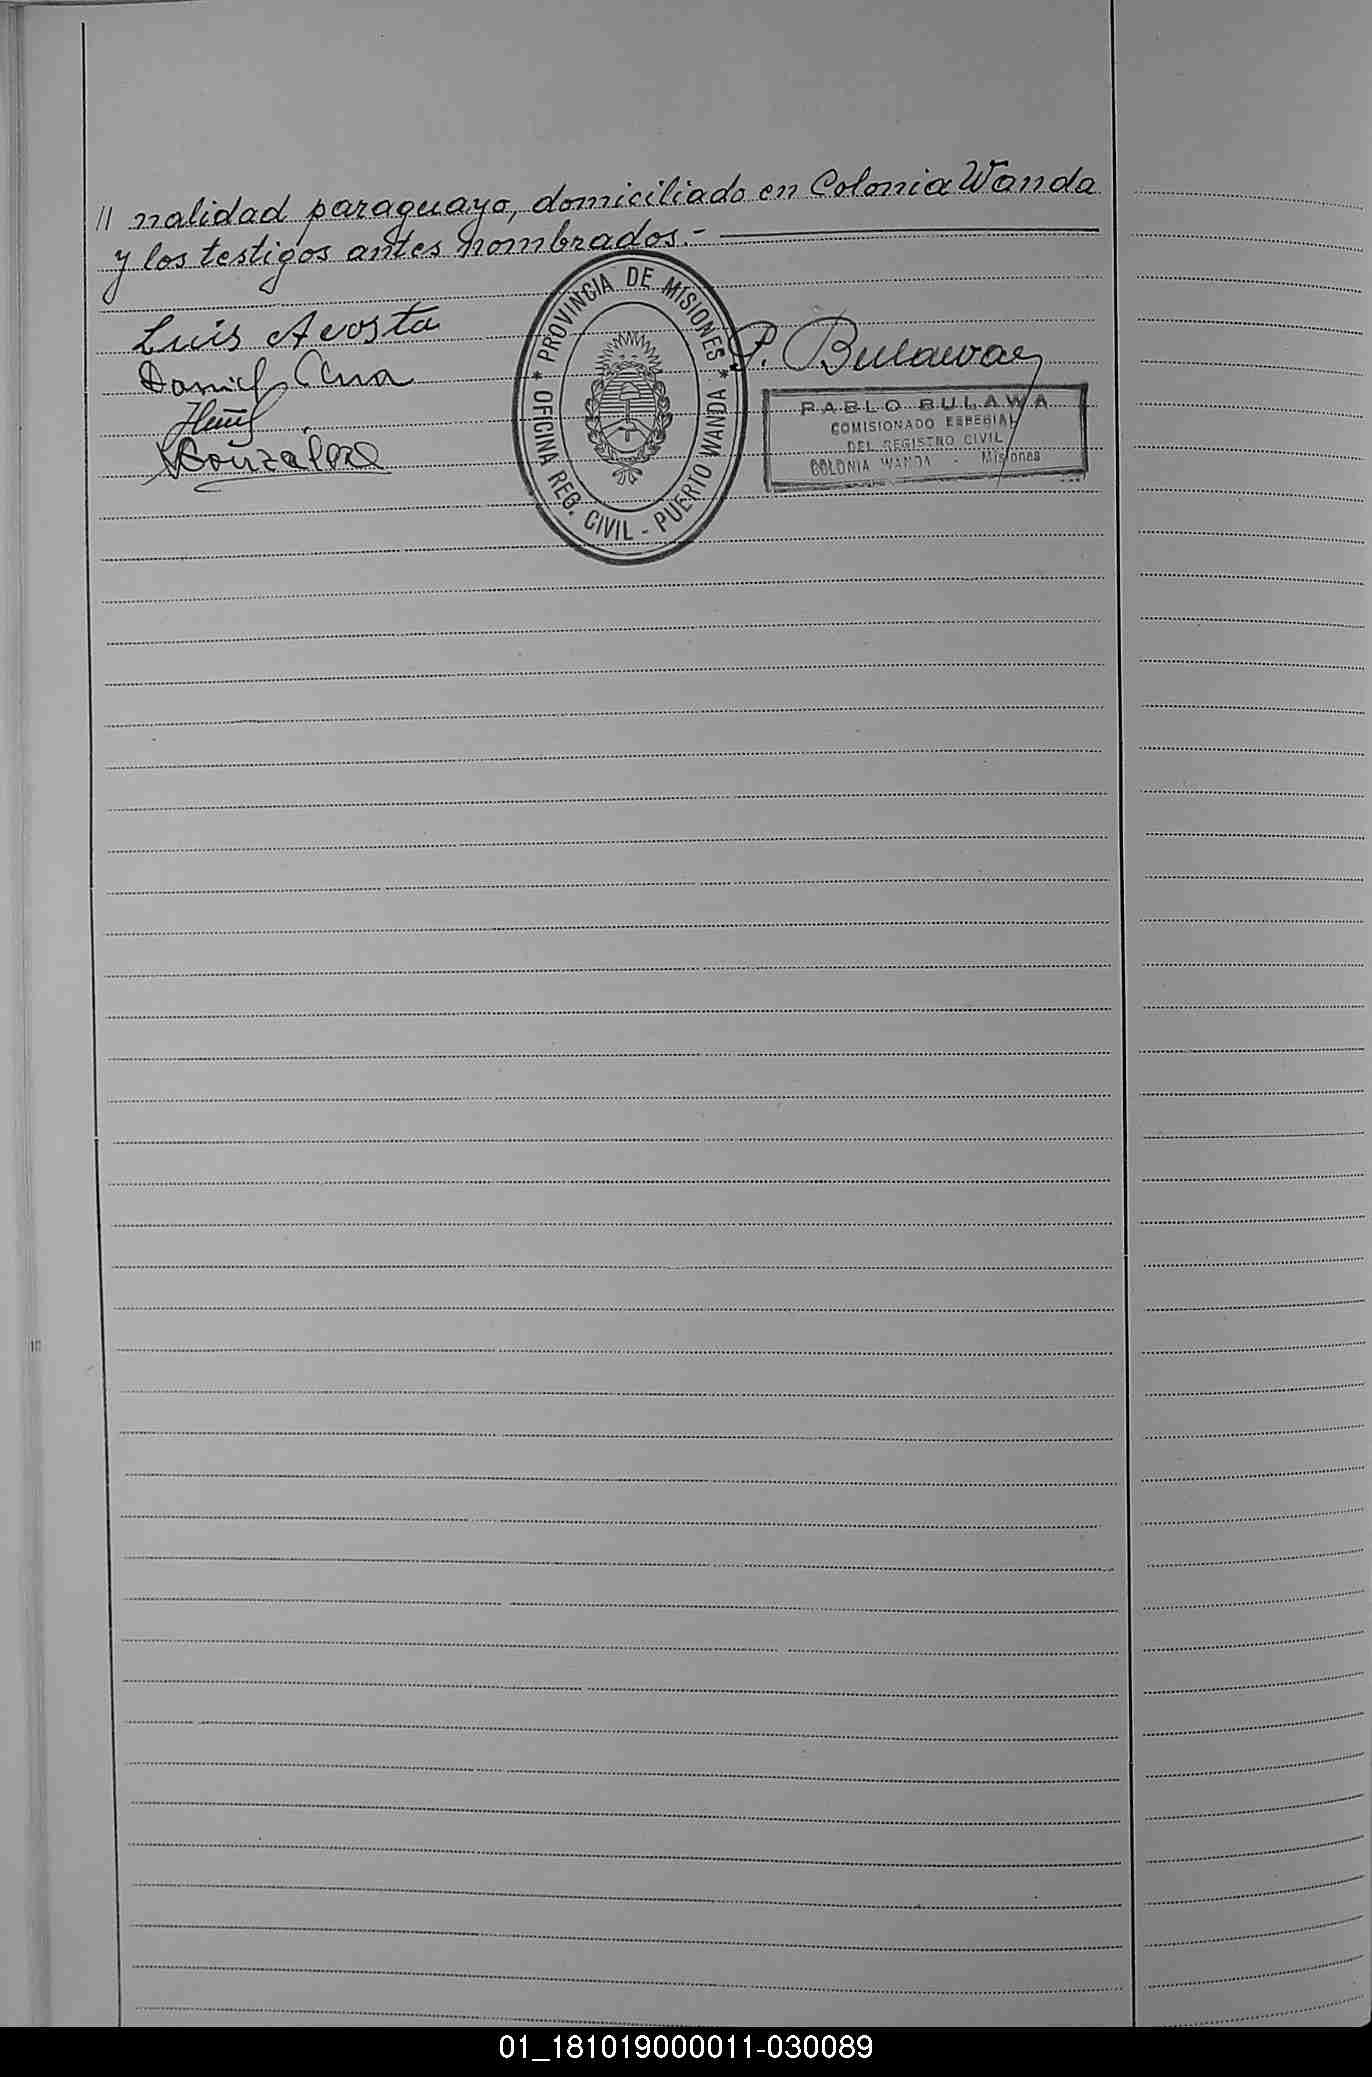 // nalidad paraguayo, domiciliado en Colonia Wanda
y los testigos antes nombrados.-
Luis Acosta
Daniel
Gonzalez
PROVINCIA DE MISIONES
* OFICINA REG. CIVIL - PUERTO WANDA *
P. Bulawa
PABLO BULAWA
COMISIONADO ESPECIAL
DEL REGISTRO CIVIL
COLONIA WANDA - Misiones
01_181019000011-030089